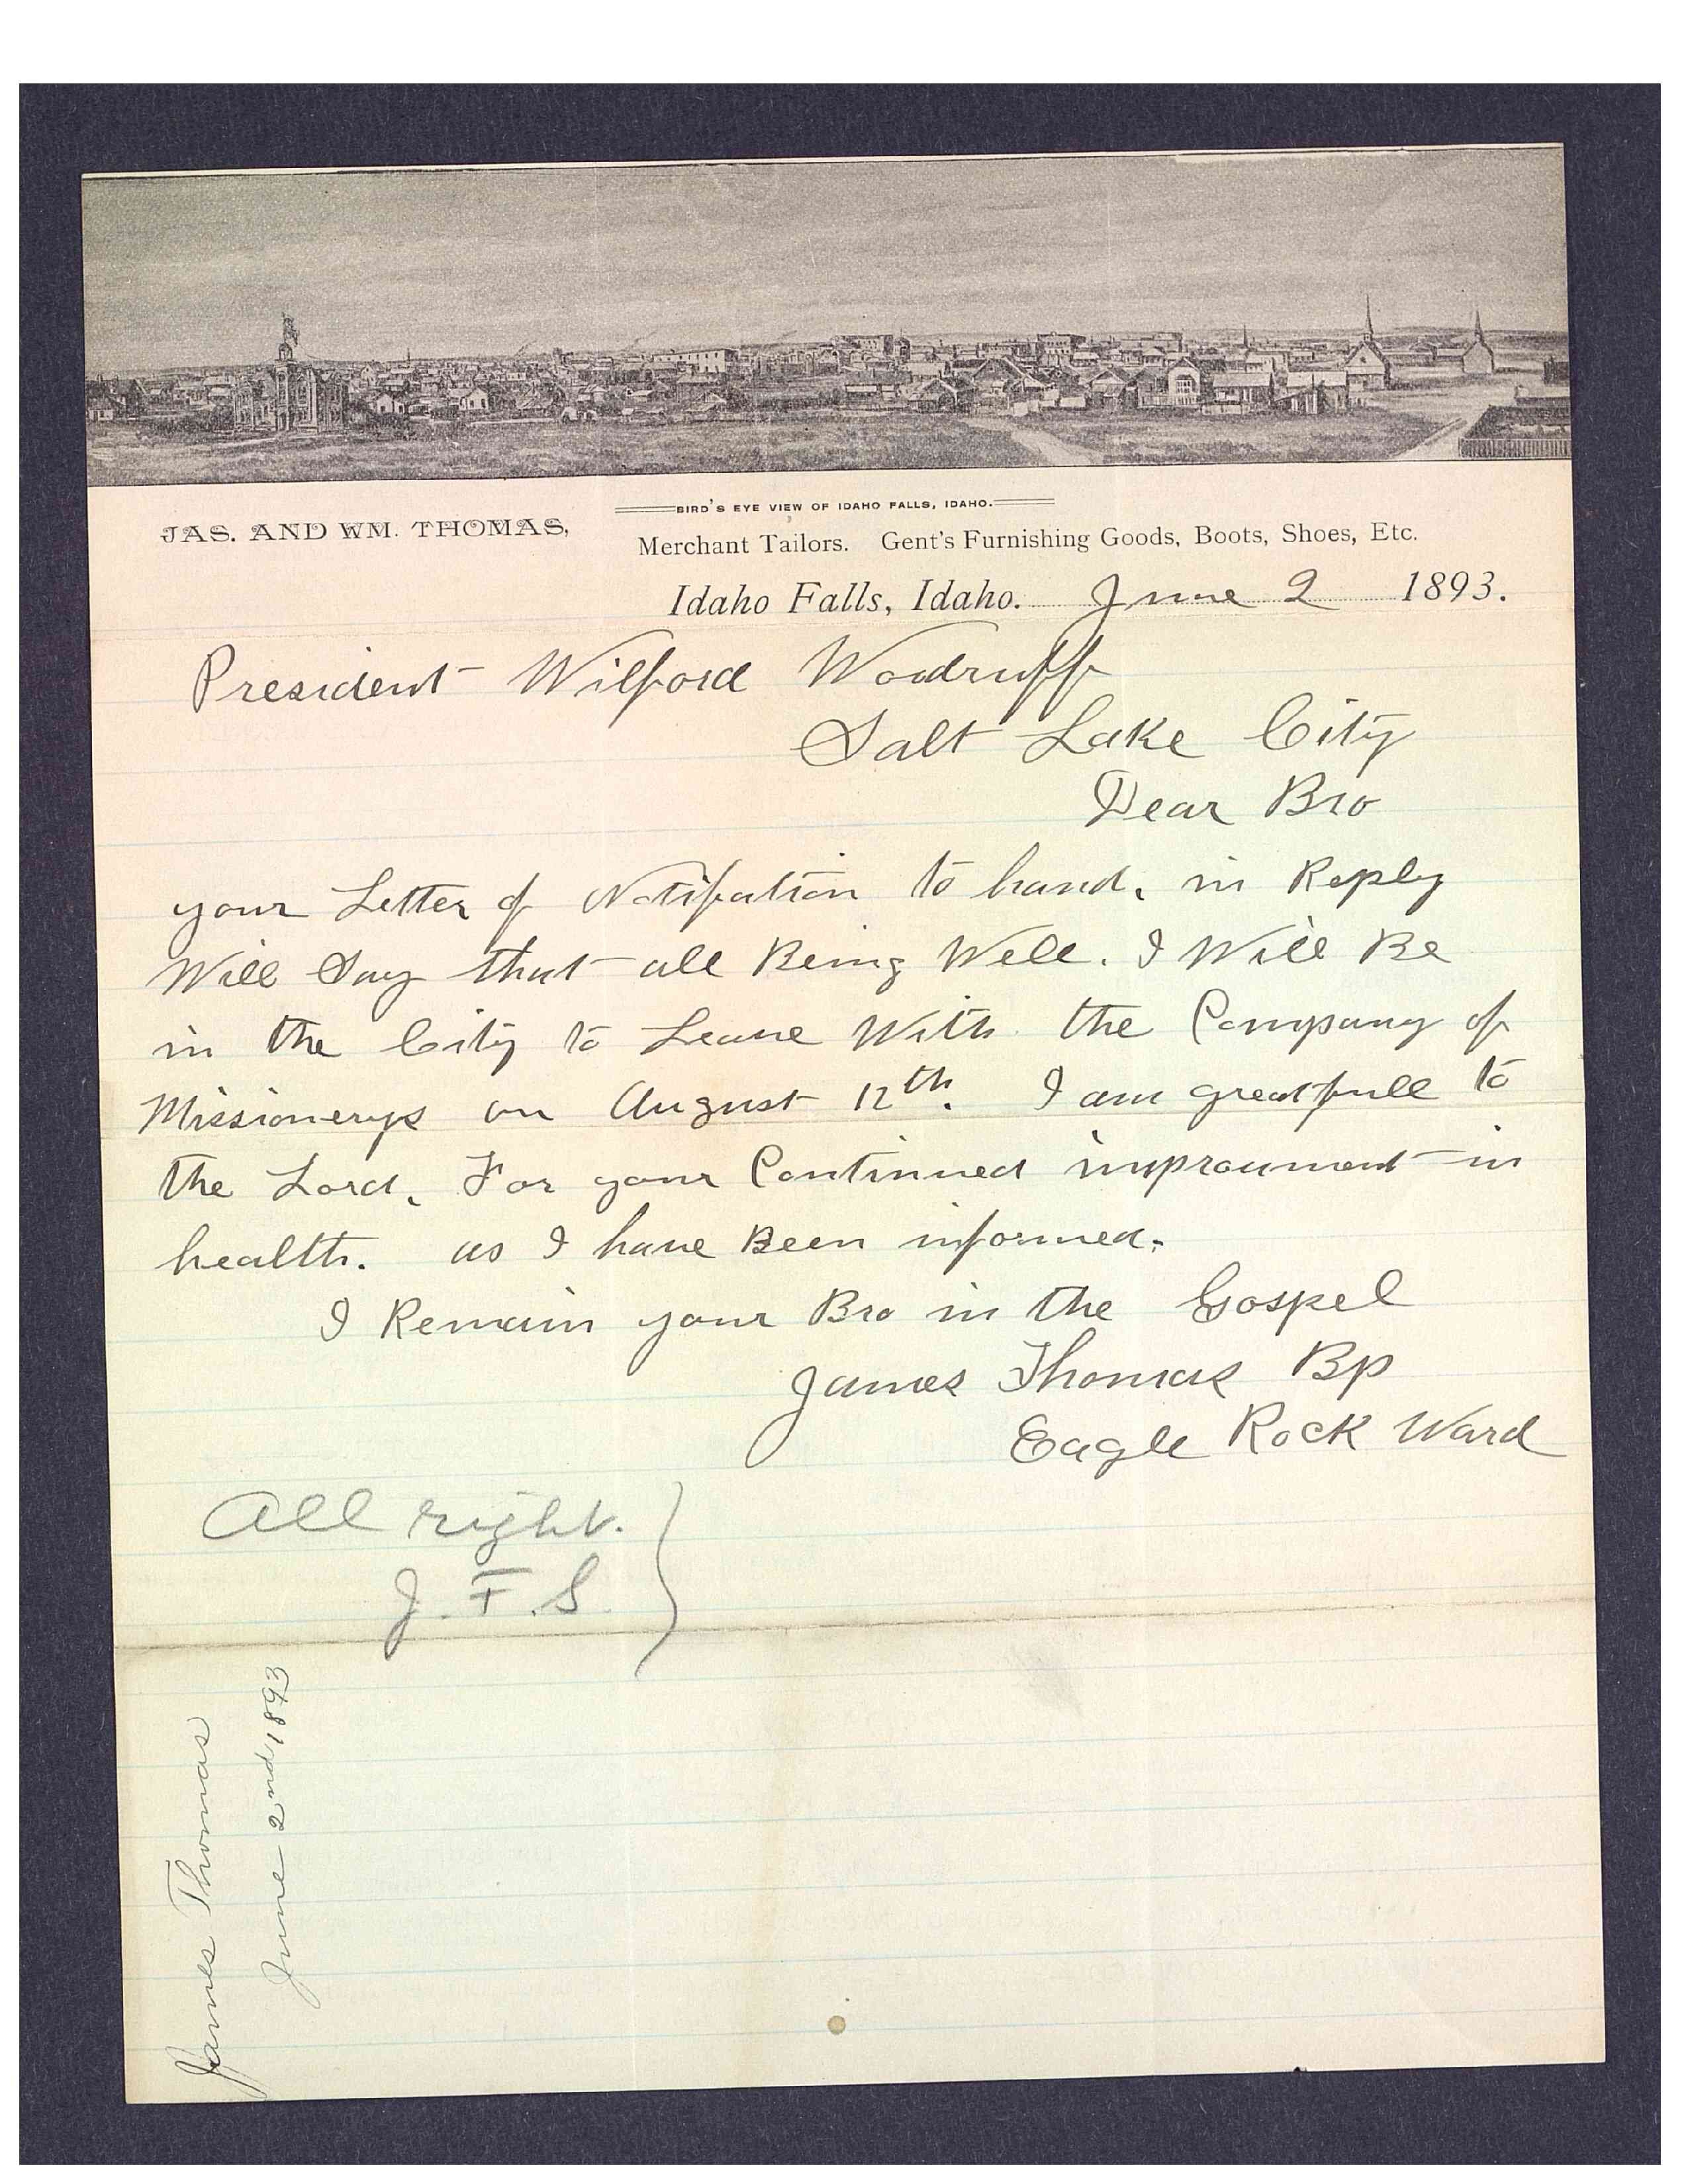 BIRD'S EYE VIEW OF IDAHO FALLS, IDAHO.
JAS. AND WM. THOMAS,
Merchant Tailors. Gent's Furnishing Goods, Boots, Shoes, Etc.
Idaho Falls, Idaho. June 2 1893.
President Wilford Woodruff
Salt Lake City
Dear Bro
your Letter of Notifation to hand. in Reply
Will Say that all Being Well. I Will Be
in the City to Leave With the Company of
Missionerys on August 12th. I am greatfull to
the Lord. For your Continued improvment in
health. as I have Been informed.
I Remain your Bro in the Gospel
James Thomas Bp
Eagle Rock Ward
All right.
J. F. S.
James Thomas
June 2nd 1893